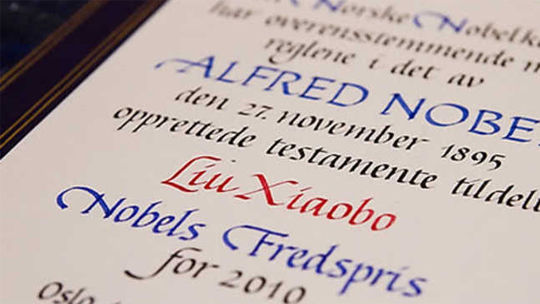 Norske Nobelk
har overensstemmende m
reglene i det av
ALFRED NOBE
den 27. november 1895
opprettede testamente tildel
Liu Xiaobo
Nobels Fredspris
for 2010
Oslo